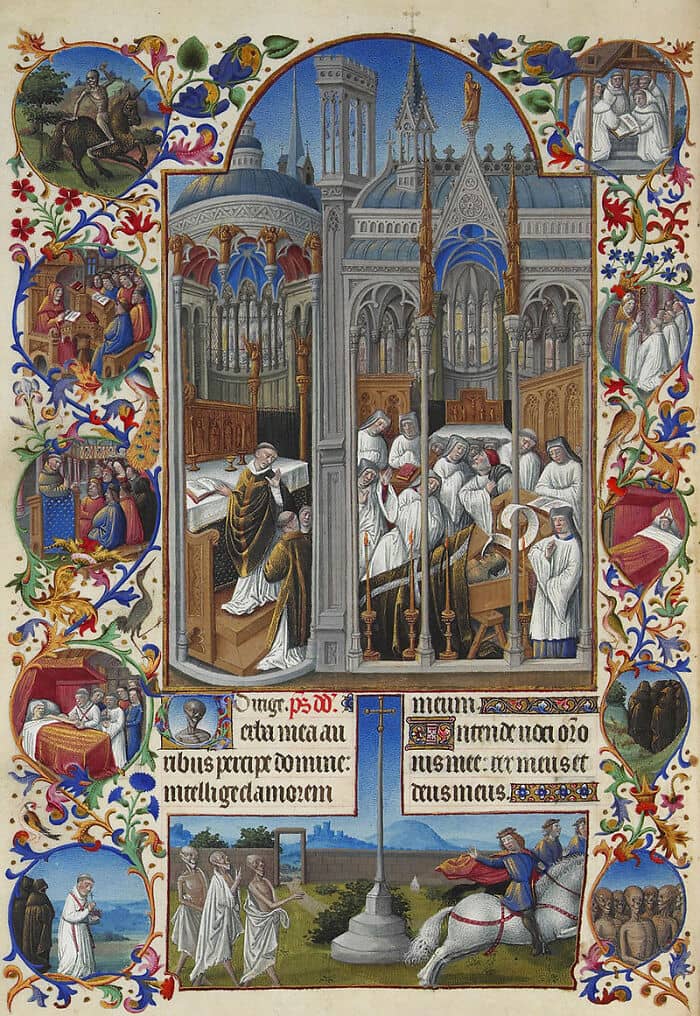 Dirige. ps dd.
erba mea au
ribus percipe domine:
intellige clamorem
meum.
Intende voci oro
nis mee: rex meus et
deus meus.